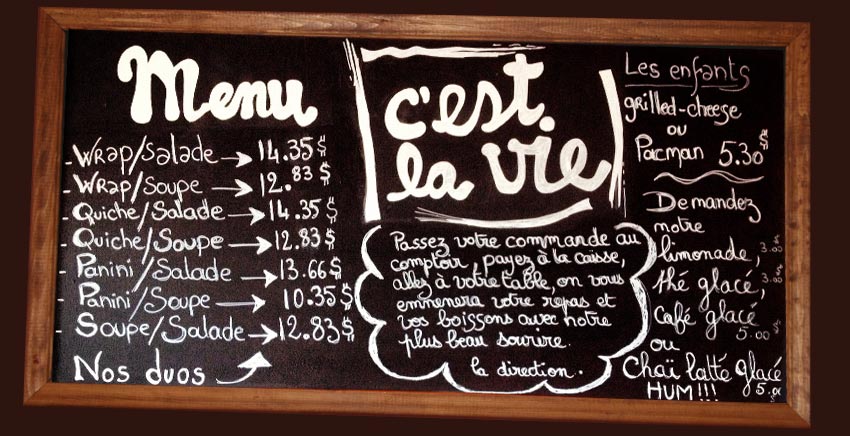 Menu
- Wrap/Salade → 14.35$
- Wrap/Soupe → 12.83$
- Quiche/Salade → 14.35$
- Quiche/Soupe → 12.83$
- Panini/Salade → 13.66$
- Panini/Soupe → 10.35$
- Soupe/Salade → 12.83$
Nos duos
c'est
la vie
Passez votre commande au
comptoir, payez à la caisse,
allez à votre table, on vous
emmenera votre repas et
vos boissons avec notre
plus beau sourire.
la direction.
Les enfants
grilled-cheese
ou
Pacman 5.30$
Demandez
notre
limonade,
thé glacé,
café glacé
5.00
ou
Chaï latté glacé
HUM!!!